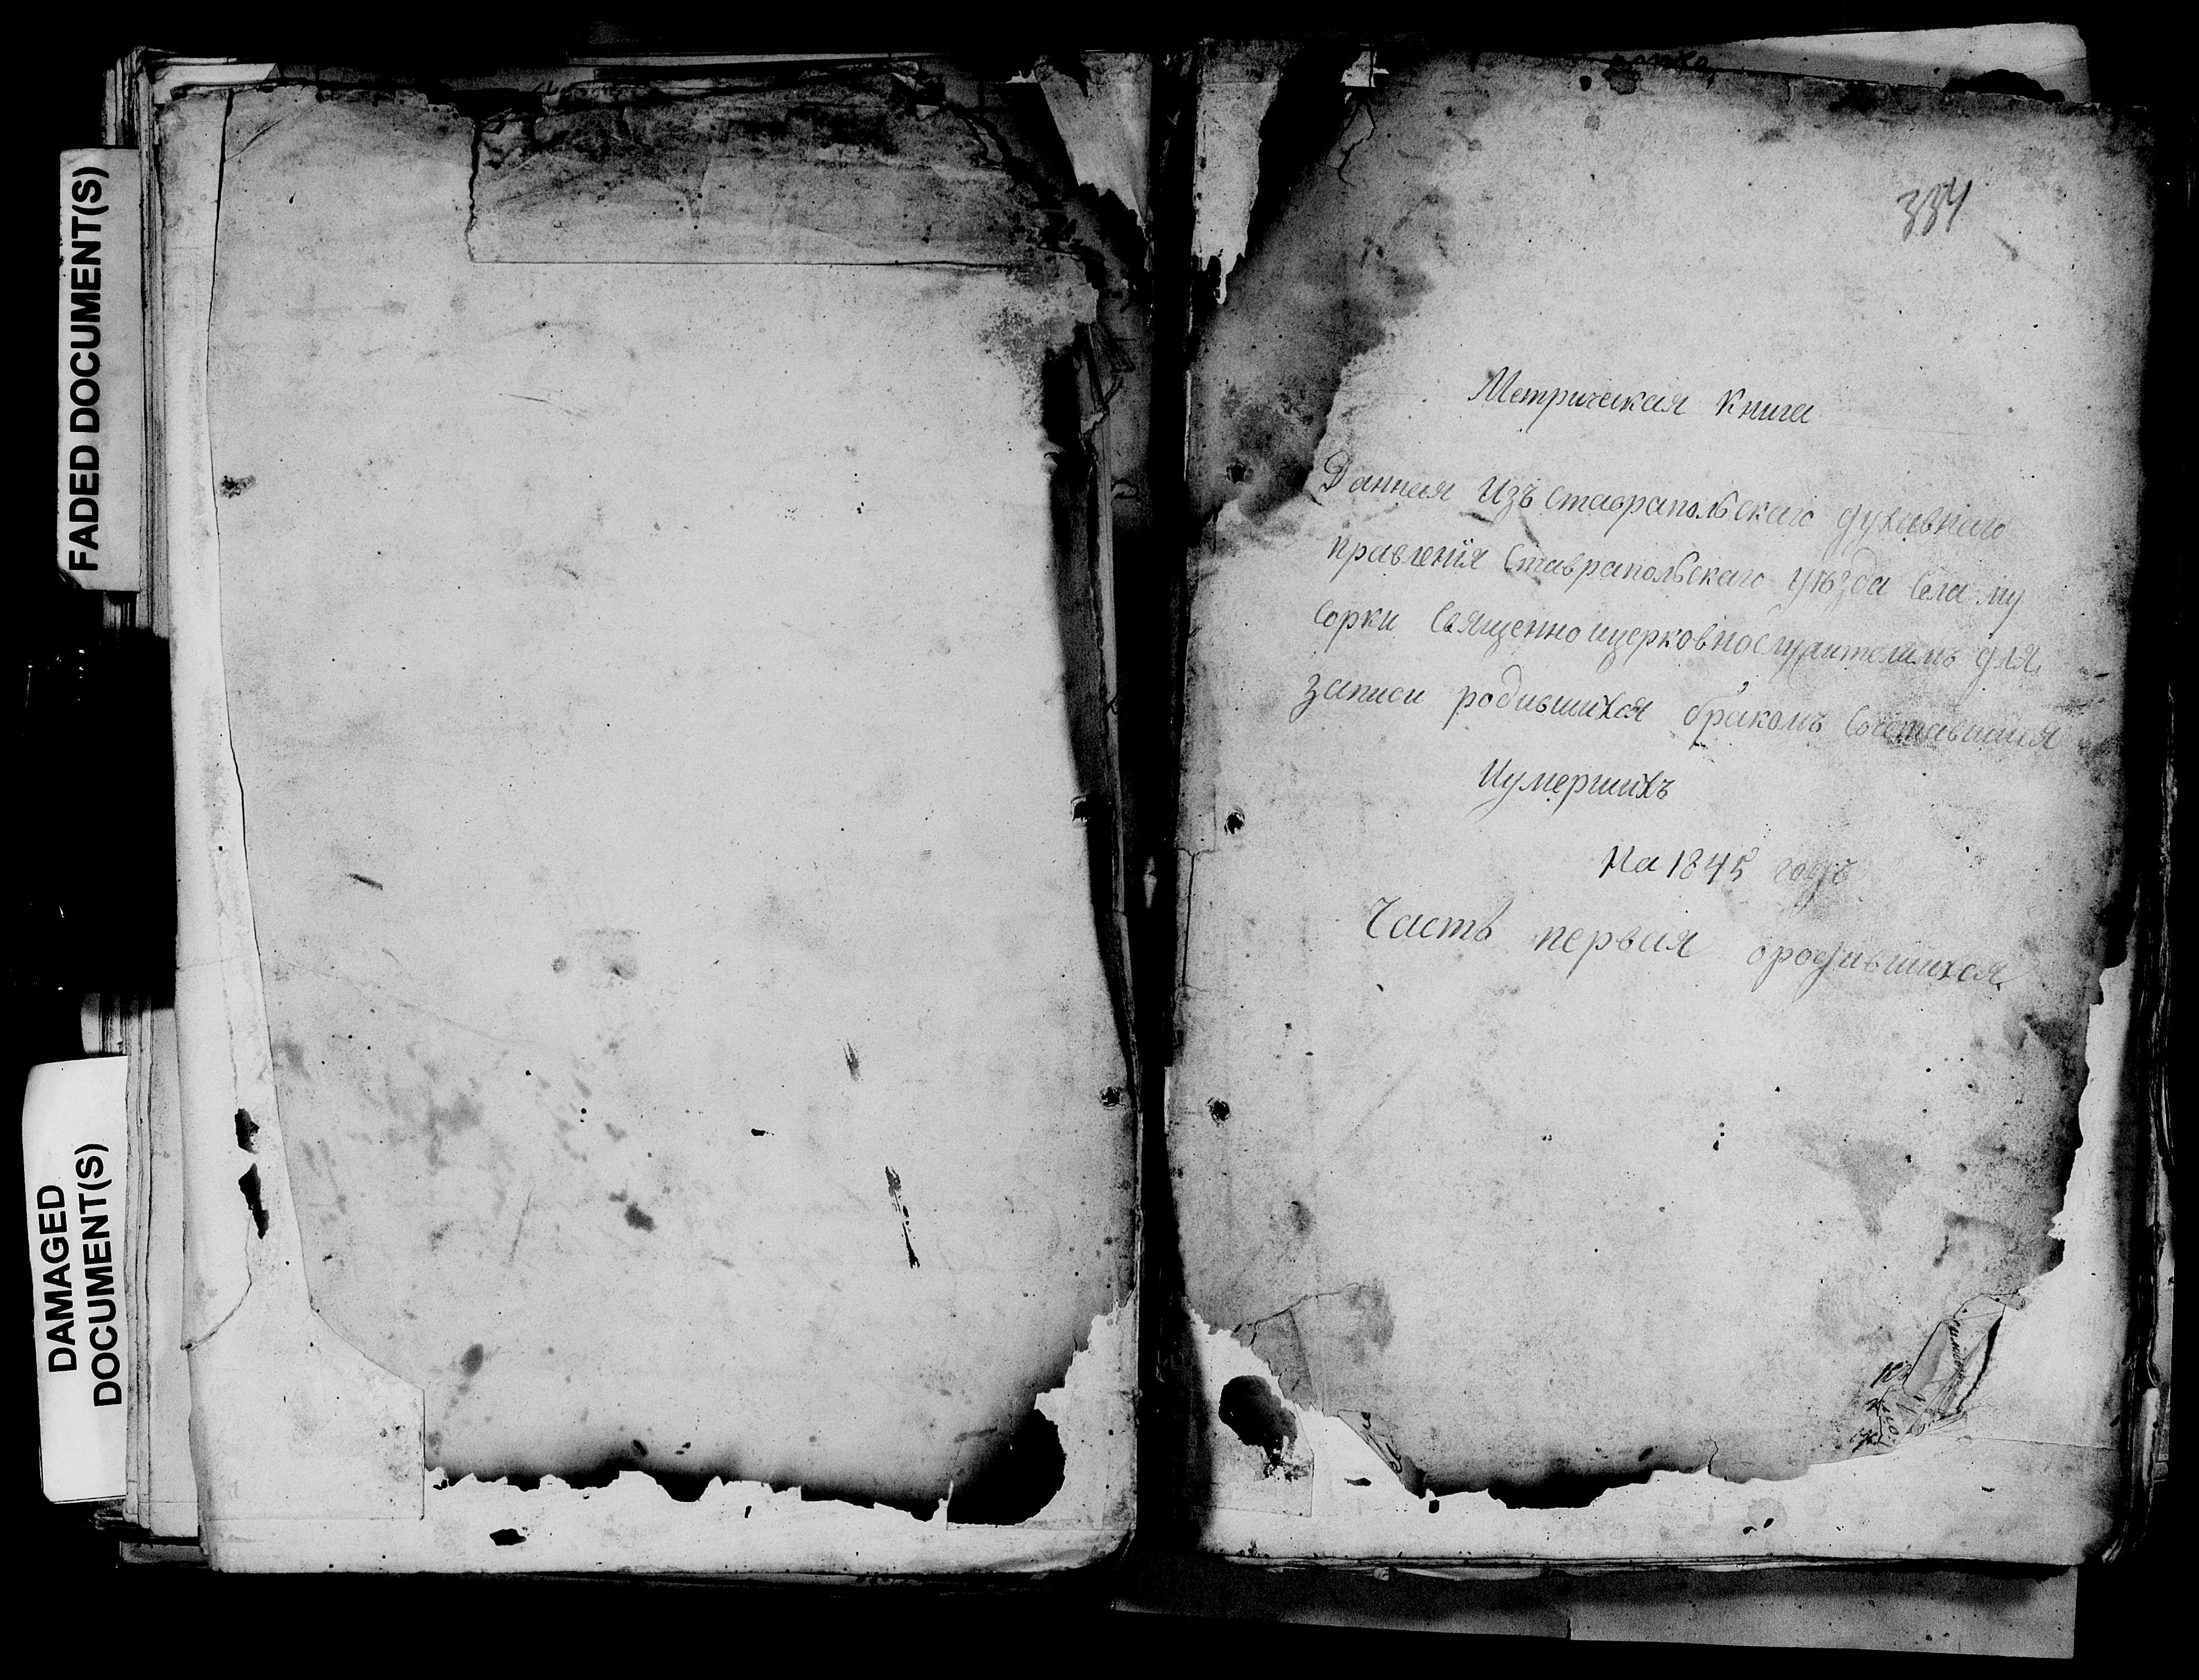 FADED DOCUMENT(S)
DAMAGED
DOCUMENT(S)
334
Метрическая Книга
Данная Изъ Ставрапольскаго духавнаго
правленія Ставрапольскаго уѣзда Села му
сорки Священно ицерковнослужителямъ для
записи родившихся бракомъ Сочетавшихся
Иумершихъ
На 1845 годъ
Часть первая ородившихся